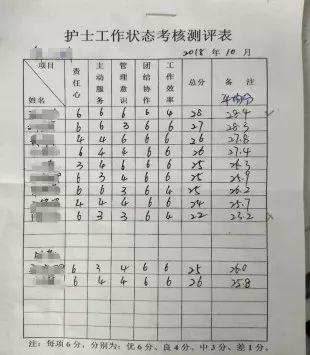 护士工作状态考核测评表
2018年10月
项目 姓名 责任心 主动服务 管理意识 团结协作 工作效率 总分 备注
平均分
6 6 6 6 4 28 28.4
6 6 3 6 6 27 28.3
4 4 6 6 6 26 27.8
6 4 6 6 26 27.4
3 4 6 6 6 25 26.3
6 4 3 6 6 25 25.9
6 6 3 6 4 25 26.2
4 4 4 6 6 24 25.7
6 3 3 6 4 22 23.2
6 3 4 6 6 25 26.0
6 4 4 6 6 26 25.8
注：每项6分，分别为：优6分、良4分、中3分、差1分。